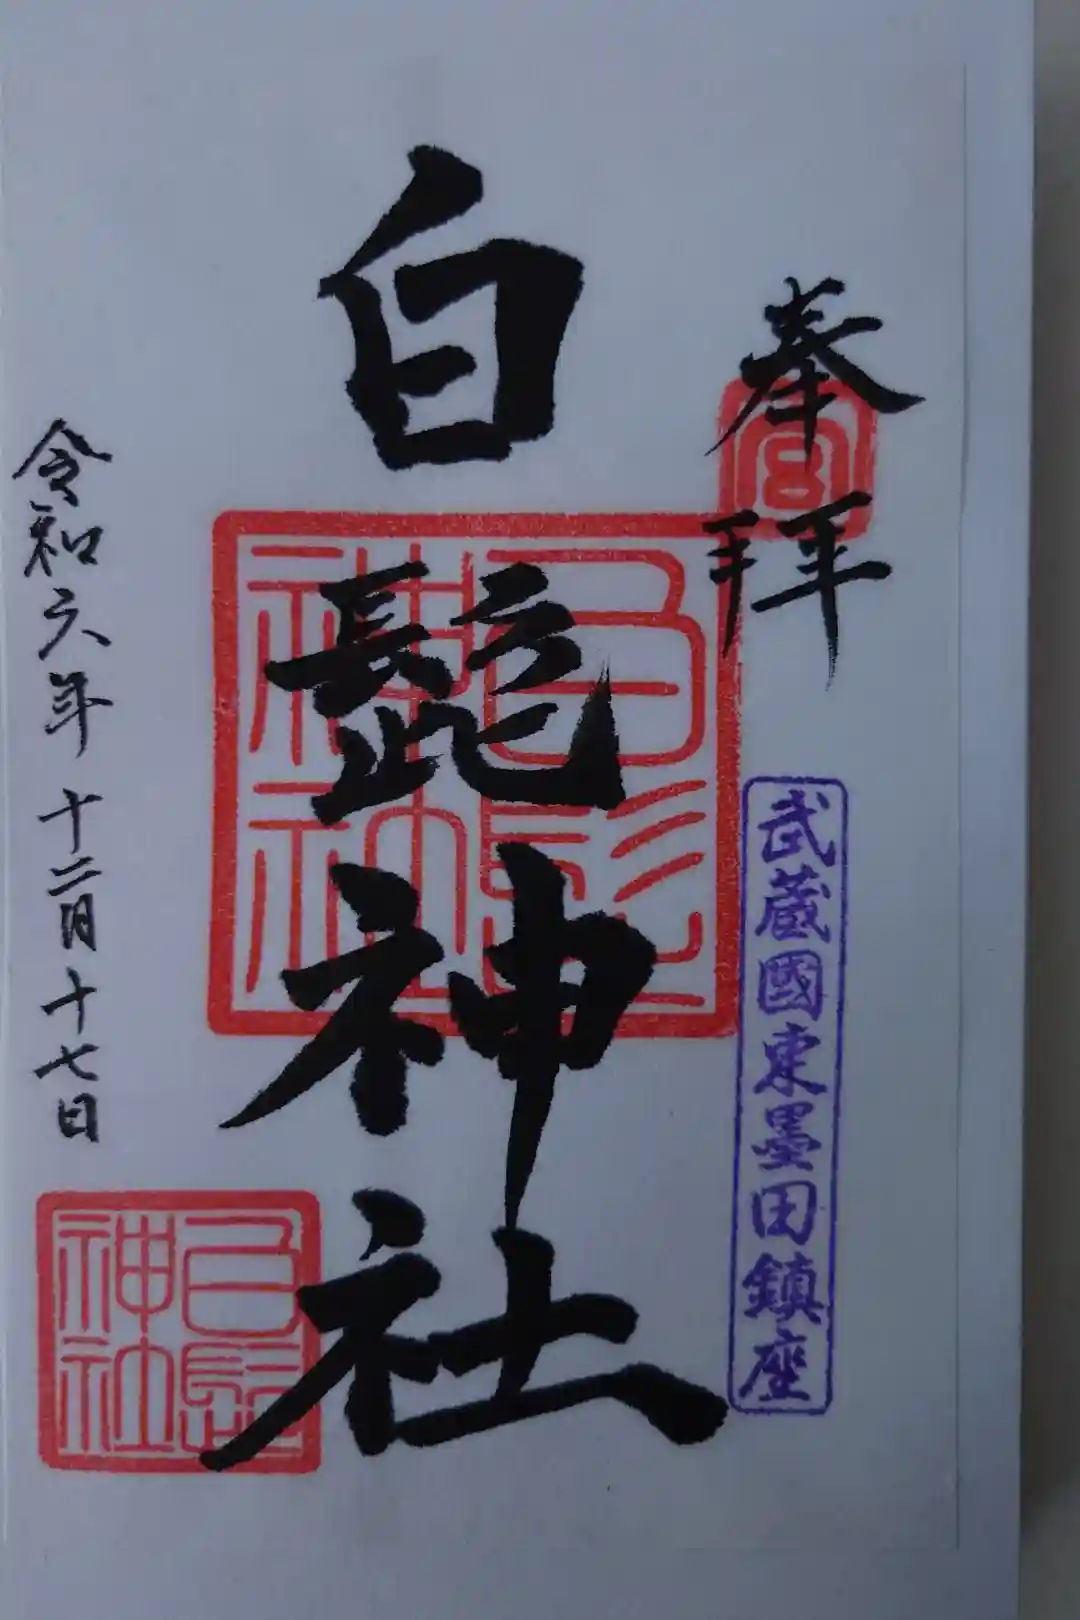 奉拝
武蔵國東墨田鎮座
白髭神社
令和六年十二月十七日
白髭神社
白髭神社